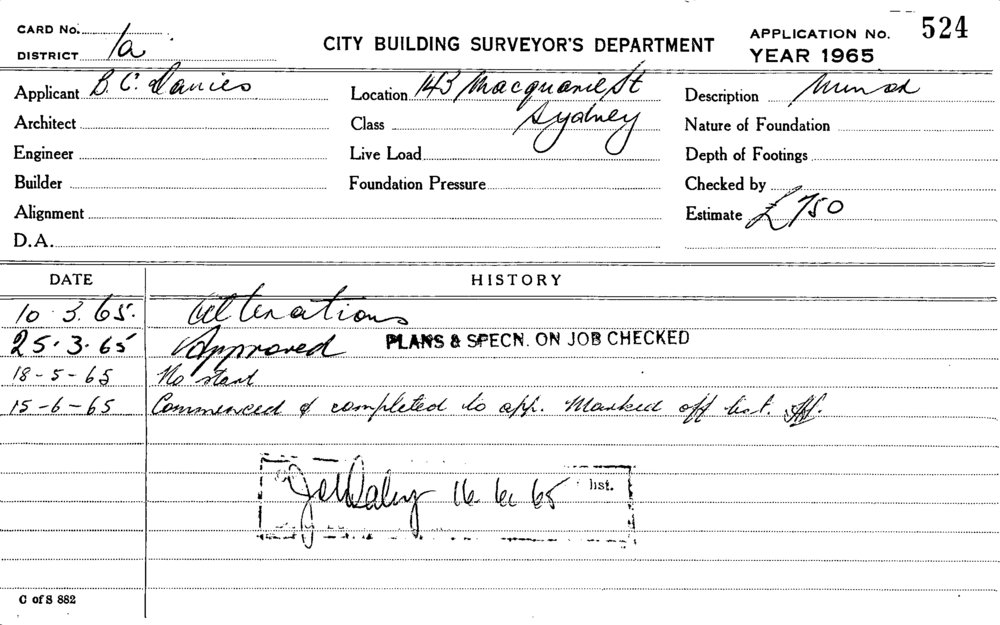 CARD No.
DISTRICT 1a
CITY BUILDING SURVEYOR'S DEPARTMENT
APPLICATION No. 524
YEAR 1965
Applicant B. C. Davies
Location 143 Macquarie St
Sydney
Description Minor
Architect
Class
Nature of Foundation
Engineer
Live Load
Depth of Footings
Builder
Foundation Pressure
Checked by
Alignment
Estimate £750
D.A.
DATE HISTORY
10.3.65. Alterations
25.3.65 Approved PLANS & SPECN. ON JOB CHECKED
18-5-65 No start
15-6-65 Commenced & completed to app. Marked off list.
16.6.65 list.
C of S 882